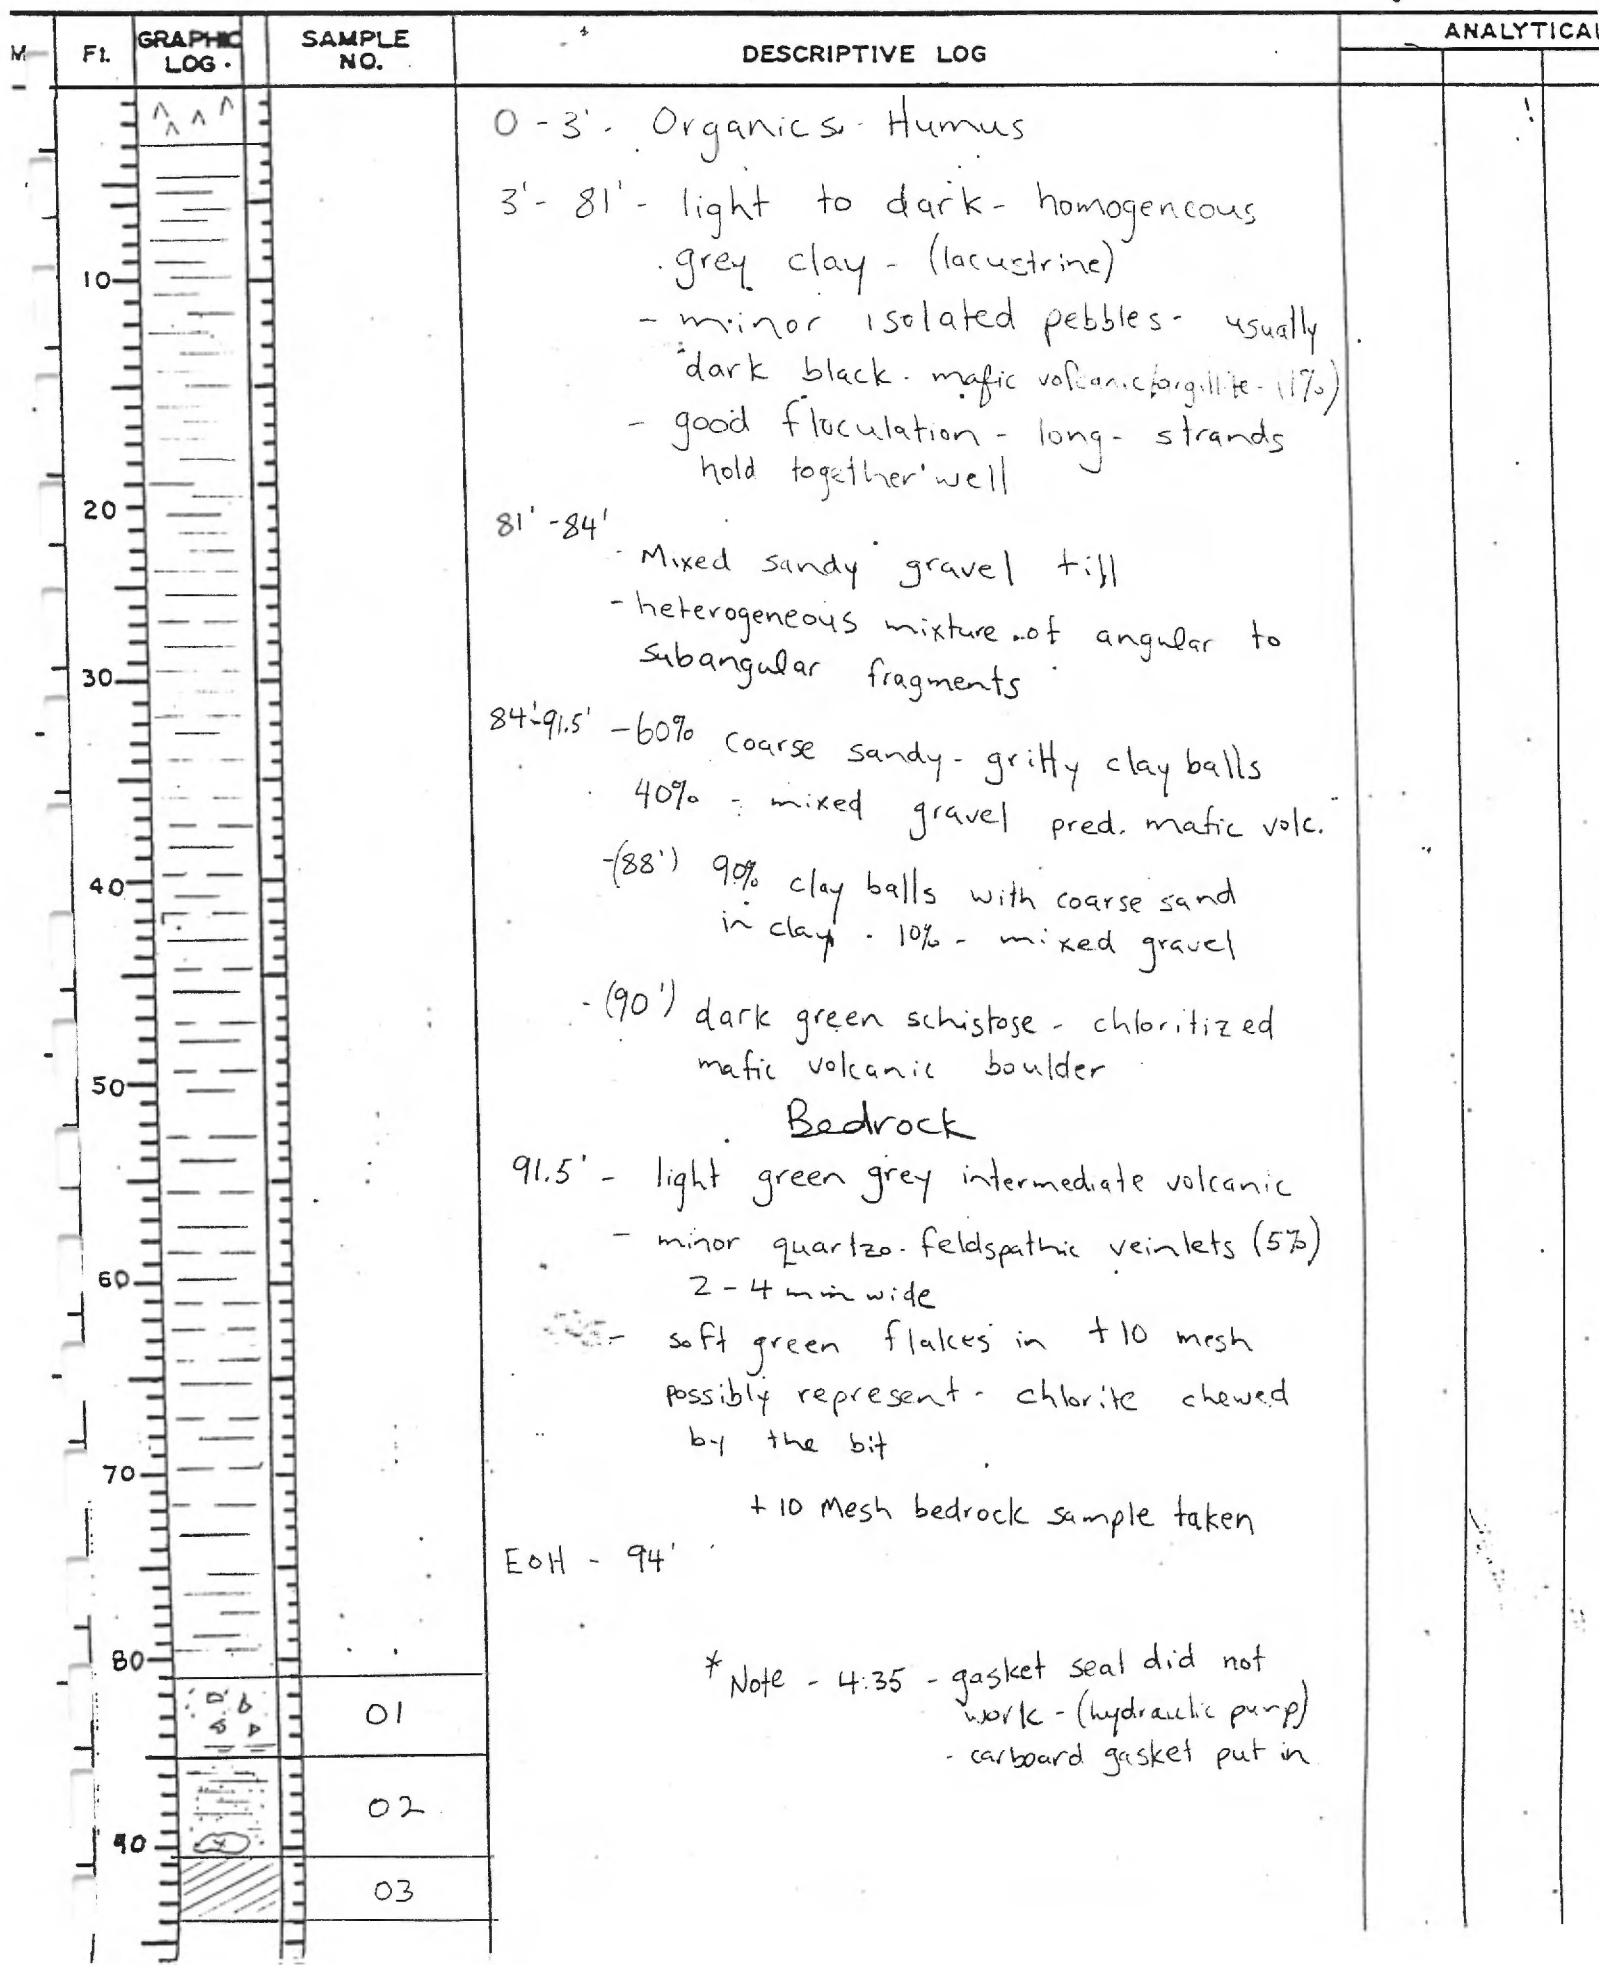 M Ft. GRAPHIC LOG. SAMPLE NO. DESCRIPTIVE LOG ANALYTICAL
0 - 3' - Organics - Humus
3' - 81' - light to dark - homogeneous
grey clay - (lacustrine)
- minor isolated pebbles - usually
dark black - mafic volcanic/argillite - (1%)
- good floculation - long - strands
hold together well
81' - 84'
- Mixed sandy gravel till
- heterogeneous mixture of angular to
subangular fragments
84'-91.5' - 60% coarse sandy - gritty clay balls
40% - mixed gravel pred. mafic volc.
- (88') 90% clay balls with coarse sand
in clay - 10% - mixed gravel
- (90') dark green schistose - chloritized
mafic volcanic boulder
Bedrock
91.5' - light green grey intermediate volcanic
- minor quartzo-feldspathic veinlets (5%)
2 - 4 mm wide
- soft green flakes in +10 mesh
possibly represent - chlorite chewed
by the bit
+10 Mesh bedrock sample taken
EOH - 94'
* Note - 4:35 - gasket seal did not
work - (hydraulic pump)
- carboard gasket put in
10
20
30
40
50
60
70
80
01
02
90
03